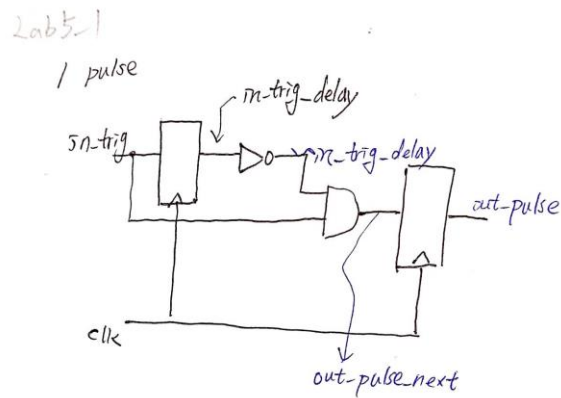 Lab5_1
1 pulse
in_trig_delay
in_trig
~in_trig_delay
out_pulse
clk
out_pulse_next